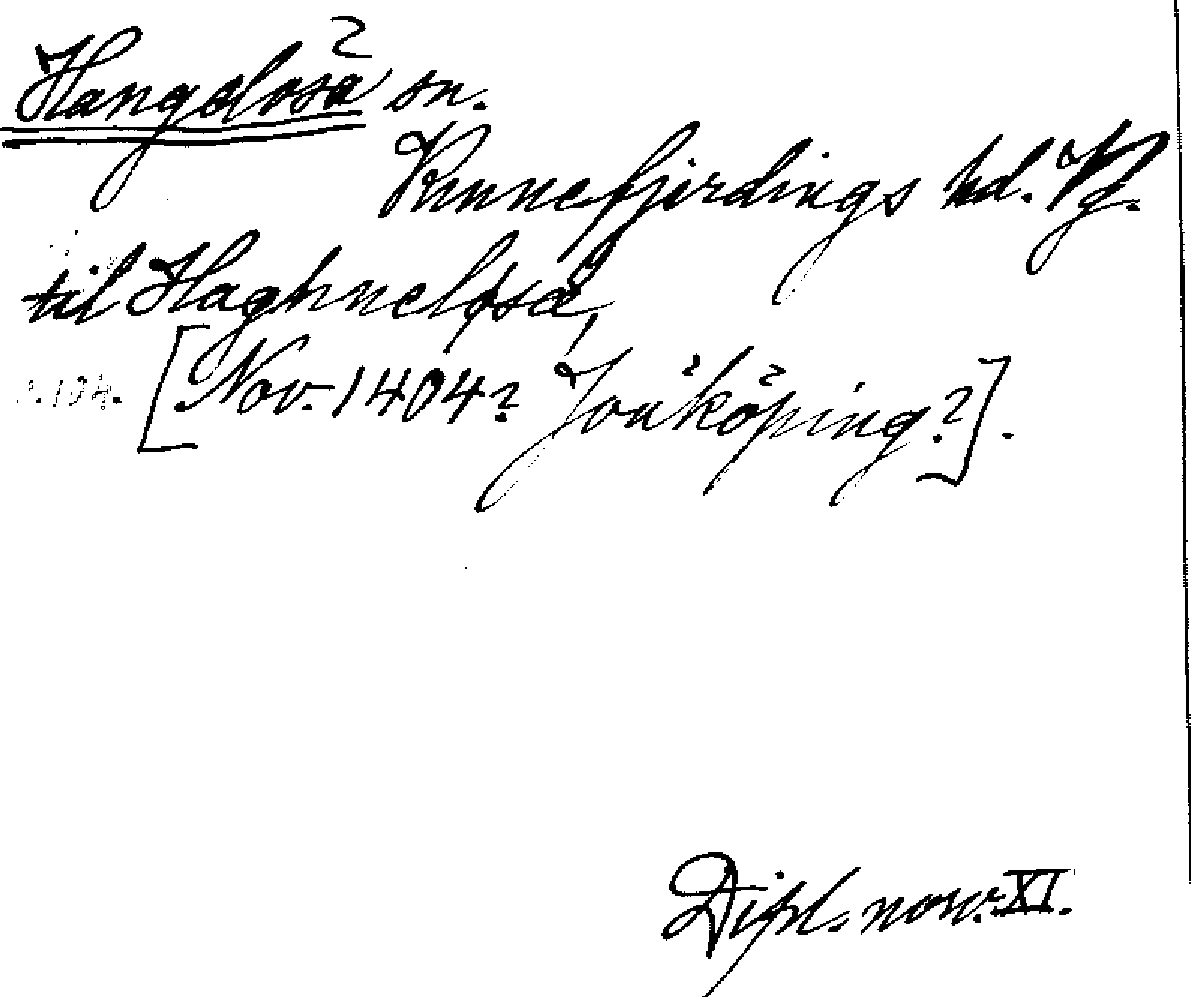 Hangelösa sn.
Kinnefjerdings hd. Vg.
til Haghneløsa,
s. 104. [Nov. 1404? Jonköping?].
Dipl. norv. XI.